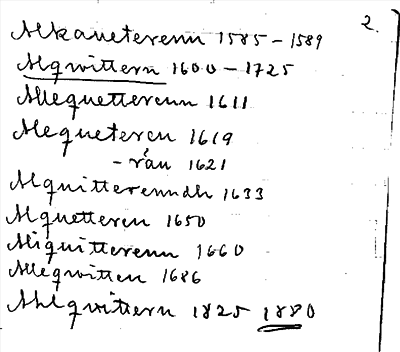 2.
Alkaneterenn 1585 - 1589
Alqwittern 1600 - 1725
Allequetterenn 1611
Alequeteren 1619
- rán 1621
Alquitterenndh 1633
Alquetteren 1650
Aliquitterenn 1660
Alleqwitten 1686
Ahlqwittern 1825 1880